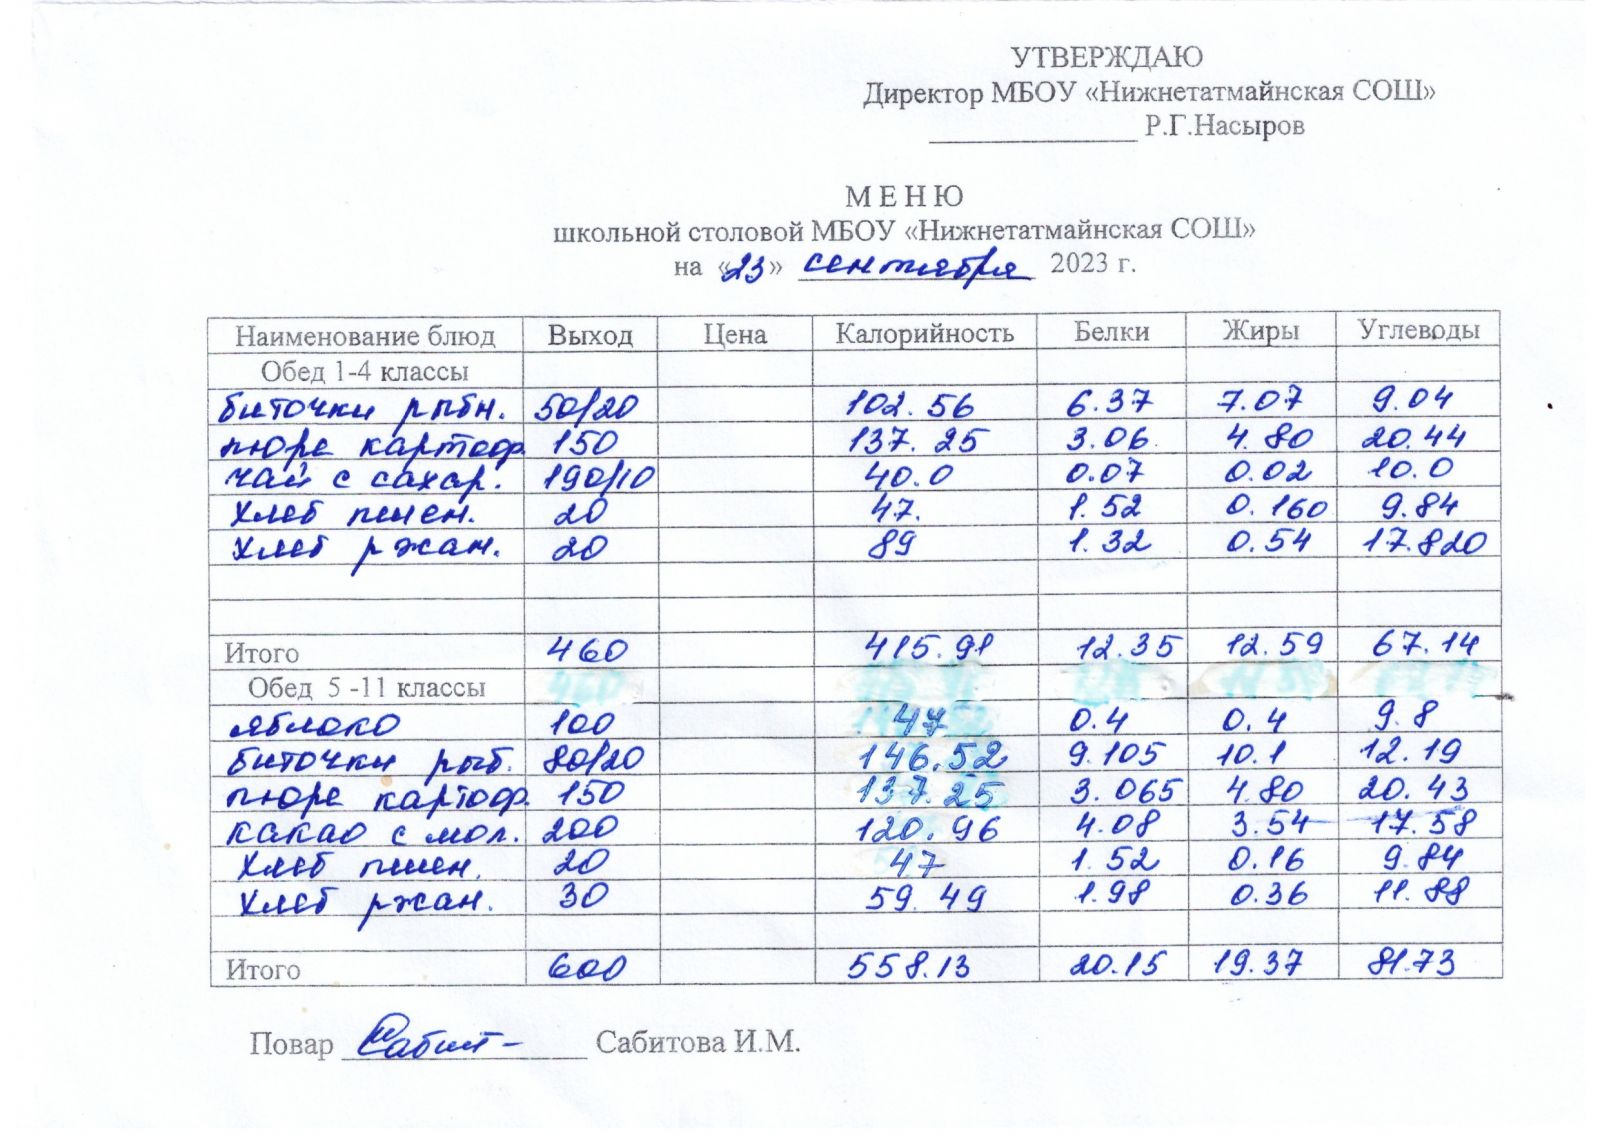 УТВЕРЖДАЮ
Директор МБОУ «Нижнетатмайнская СОШ»
Р.Г.Насыров
М Е Н Ю
школьной столовой МБОУ «Нижнетатмайнская СОШ»
на «23» сентября 2023 г.
Наименование блюд Выход Цена Калорийность Белки Жиры Углеводы
Обед 1-4 классы
биточки рыбн. 50/20 102.56 6.37 7.07 9.04
пюре картоф. 150 137.25 3.06 4.80 20.44
чай с сахар. 190/10 40.0 0.07 0.02 10.0
хлеб пшен. 20 47. 1.52 0.160 9.84
хлеб ржан. 20 89 1.32 0.54 17.820
Итого 460 415.91 12.35 12.59 67.14
Обед 5 -11 классы
яблоко 100 47 0.4 0.4 9.8
биточки рыб. 80/20 146.52 9.105 10.1 12.19
пюре картоф. 150 137.25 3.065 4.80 20.43
какао с мол. 200 120.96 4.08 3.54 17.58
хлеб пшен. 20 47 1.52 0.16 9.84
хлеб ржан. 30 59.49 1.98 0.36 11.88
Итого 600 558.13 20.15 19.37 81.73
Повар Сабит- Сабитова И.М.